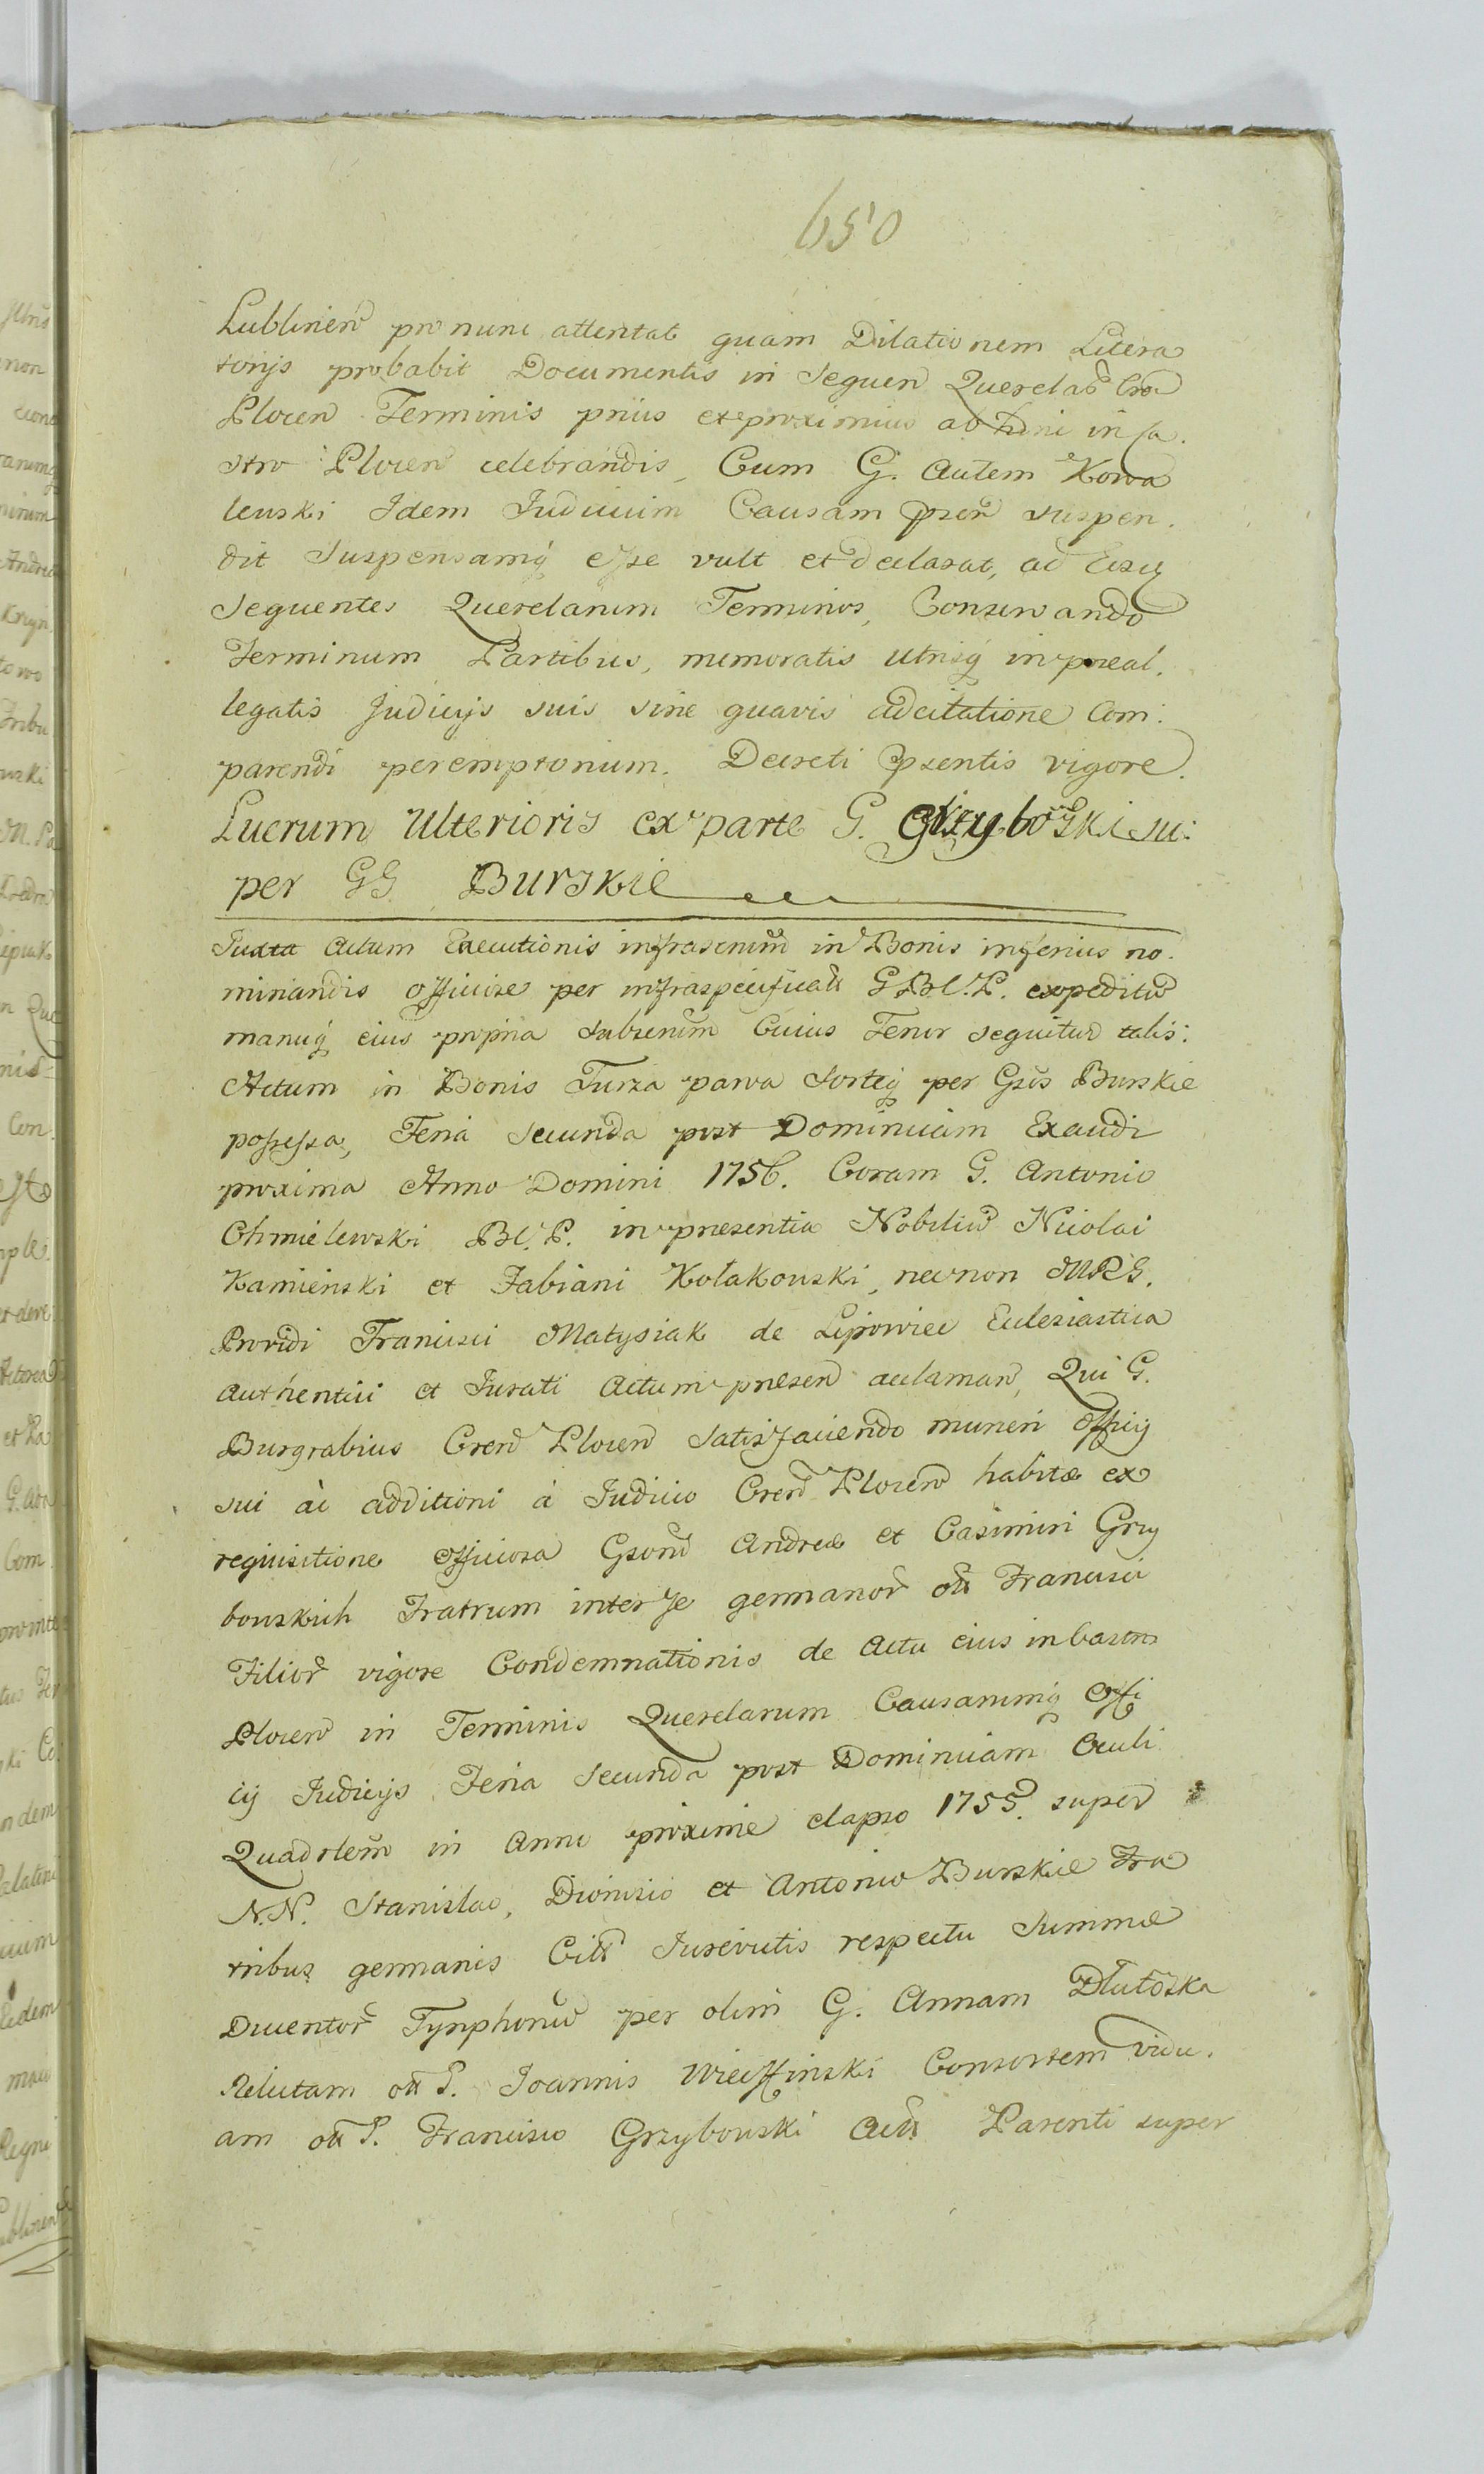 650
Lublinen pro nunc attentat quam Dilationem Litera
torijs probabit Documentis in Sequen Querelar
Plocen Terminis prius et proximius ab hinc in Ca.
stro Plocen celebrandis, Cum G. Autem Kowa
lewski Idem Iudicium Causam pscn suspen.
dit Suspensamq esse vult et declarat, ad
Sequentes Querelarum Terminos, Conservando
Terminum Partibus, memoratis utrisq in preal.
legatis Judicijs suis sine quavis adcitatione Com:
parendi peremptorium. Decreti psentis vigore.
Lucrum Ulterioris ex parte G. Grzyboski su:
per GG Burskie
Iuxta Actum Executionis infrascrium in Bonis inferius no.
minandis officiose per infraspecificatu G.B.C.P. expeditu
manuq eius propria subscrium Cuius Tenor sequitur talis:
Actum in Bonis Turza parva Sorteq per Gsos Burskie
possessa, Feria Secunda post Dominicam Exaudi
proxima Anno Domini 1756. Coram G. Antonio
Chmielewski B.C.P. in presentia Nobiliu Nicolai
Kamieński et Fabiani Kołakowski, necnon MRG.
Providi Francisci Matysiak de Lipowiec Ecclesiastica
authentici et Iurati Actum presen acclaman, Qui G.
Burgrabius Cren Plocen Satisfaciendo muneri officij
sui ac additioni à Iudicio Cren Plocen habitæ ex
requisitione officiosa Gsoru Andreæ et Casimiri Grzy
bowskich Fratrum inter se germanor ott Francisci
Filior vigore Condemnationis de Actu eius in Castro
Plocen in Terminis Querelarum Causarumq Offi
cij Iudicijs Feria Secunda post Dominicam Oculi
Quadrlem in Anno proxime elapso 1755. super
N.N. Stanislao, Dionisio et Antonio Burskie Fra
tribus germanis Citt Iurevictis respectu Summæ
Ducentor Tynphoru per olim G. Annam Dłutoska
Relictam ott G. Joannis Wiecffinski Consortem vidu.
am ott G. Francisco Grzybowski Parenti super